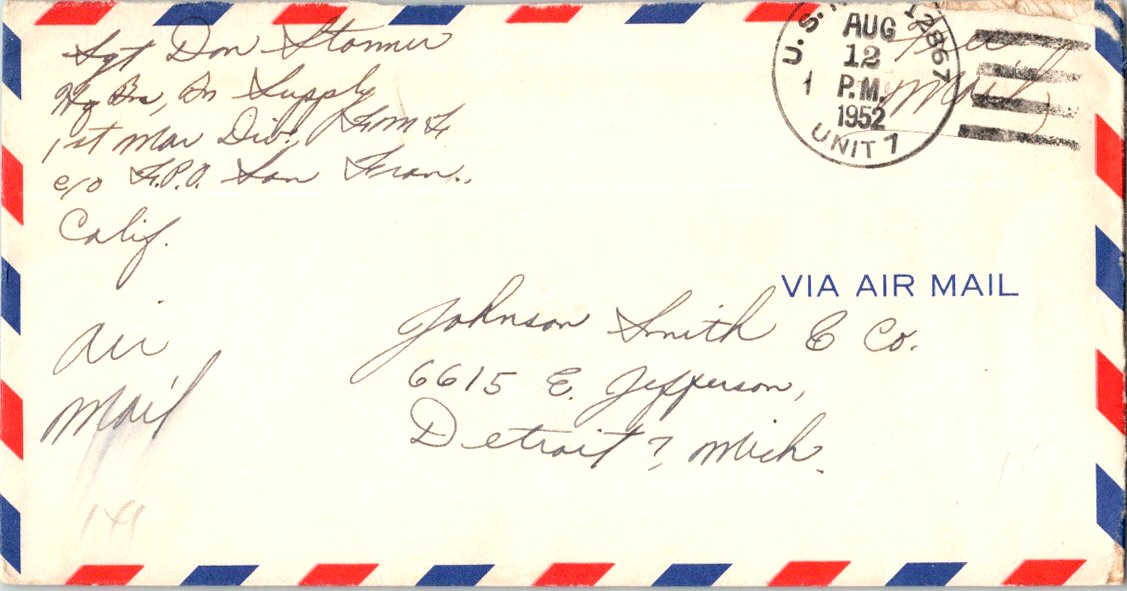 Sgt Don Stormer
Hq Bn, Bn Supply
1st Mar Div, F.M.F.
c/o F.P.O. San Fran.,
Calif.
U.S. 12867
AUG
12
1 P.M.
1952
UNIT 1
Free
Mail
VIA AIR MAIL
air
mail
Johnson Smith & Co.
6615 E. Jefferson,
Detroit 7, Mich.